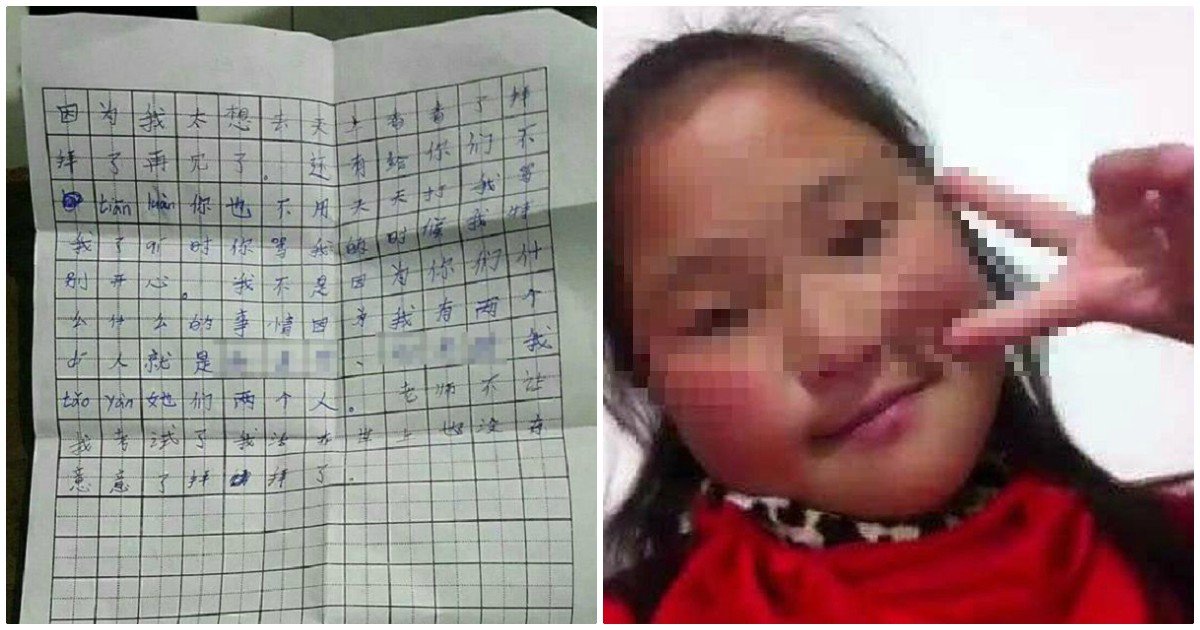 因为我太想去天上看看了拜
拜了再见了。还有给你们不
tiān luàn 你也不用天天打我等
我了时你骂我的时候我特
别开心。我不是因为你们什
么什么的事情因为我有两个
dí人就是、我
tǎo yàn 她们两个人。老师不让
我考试了我活在世上也没有
意意了拜拜了。